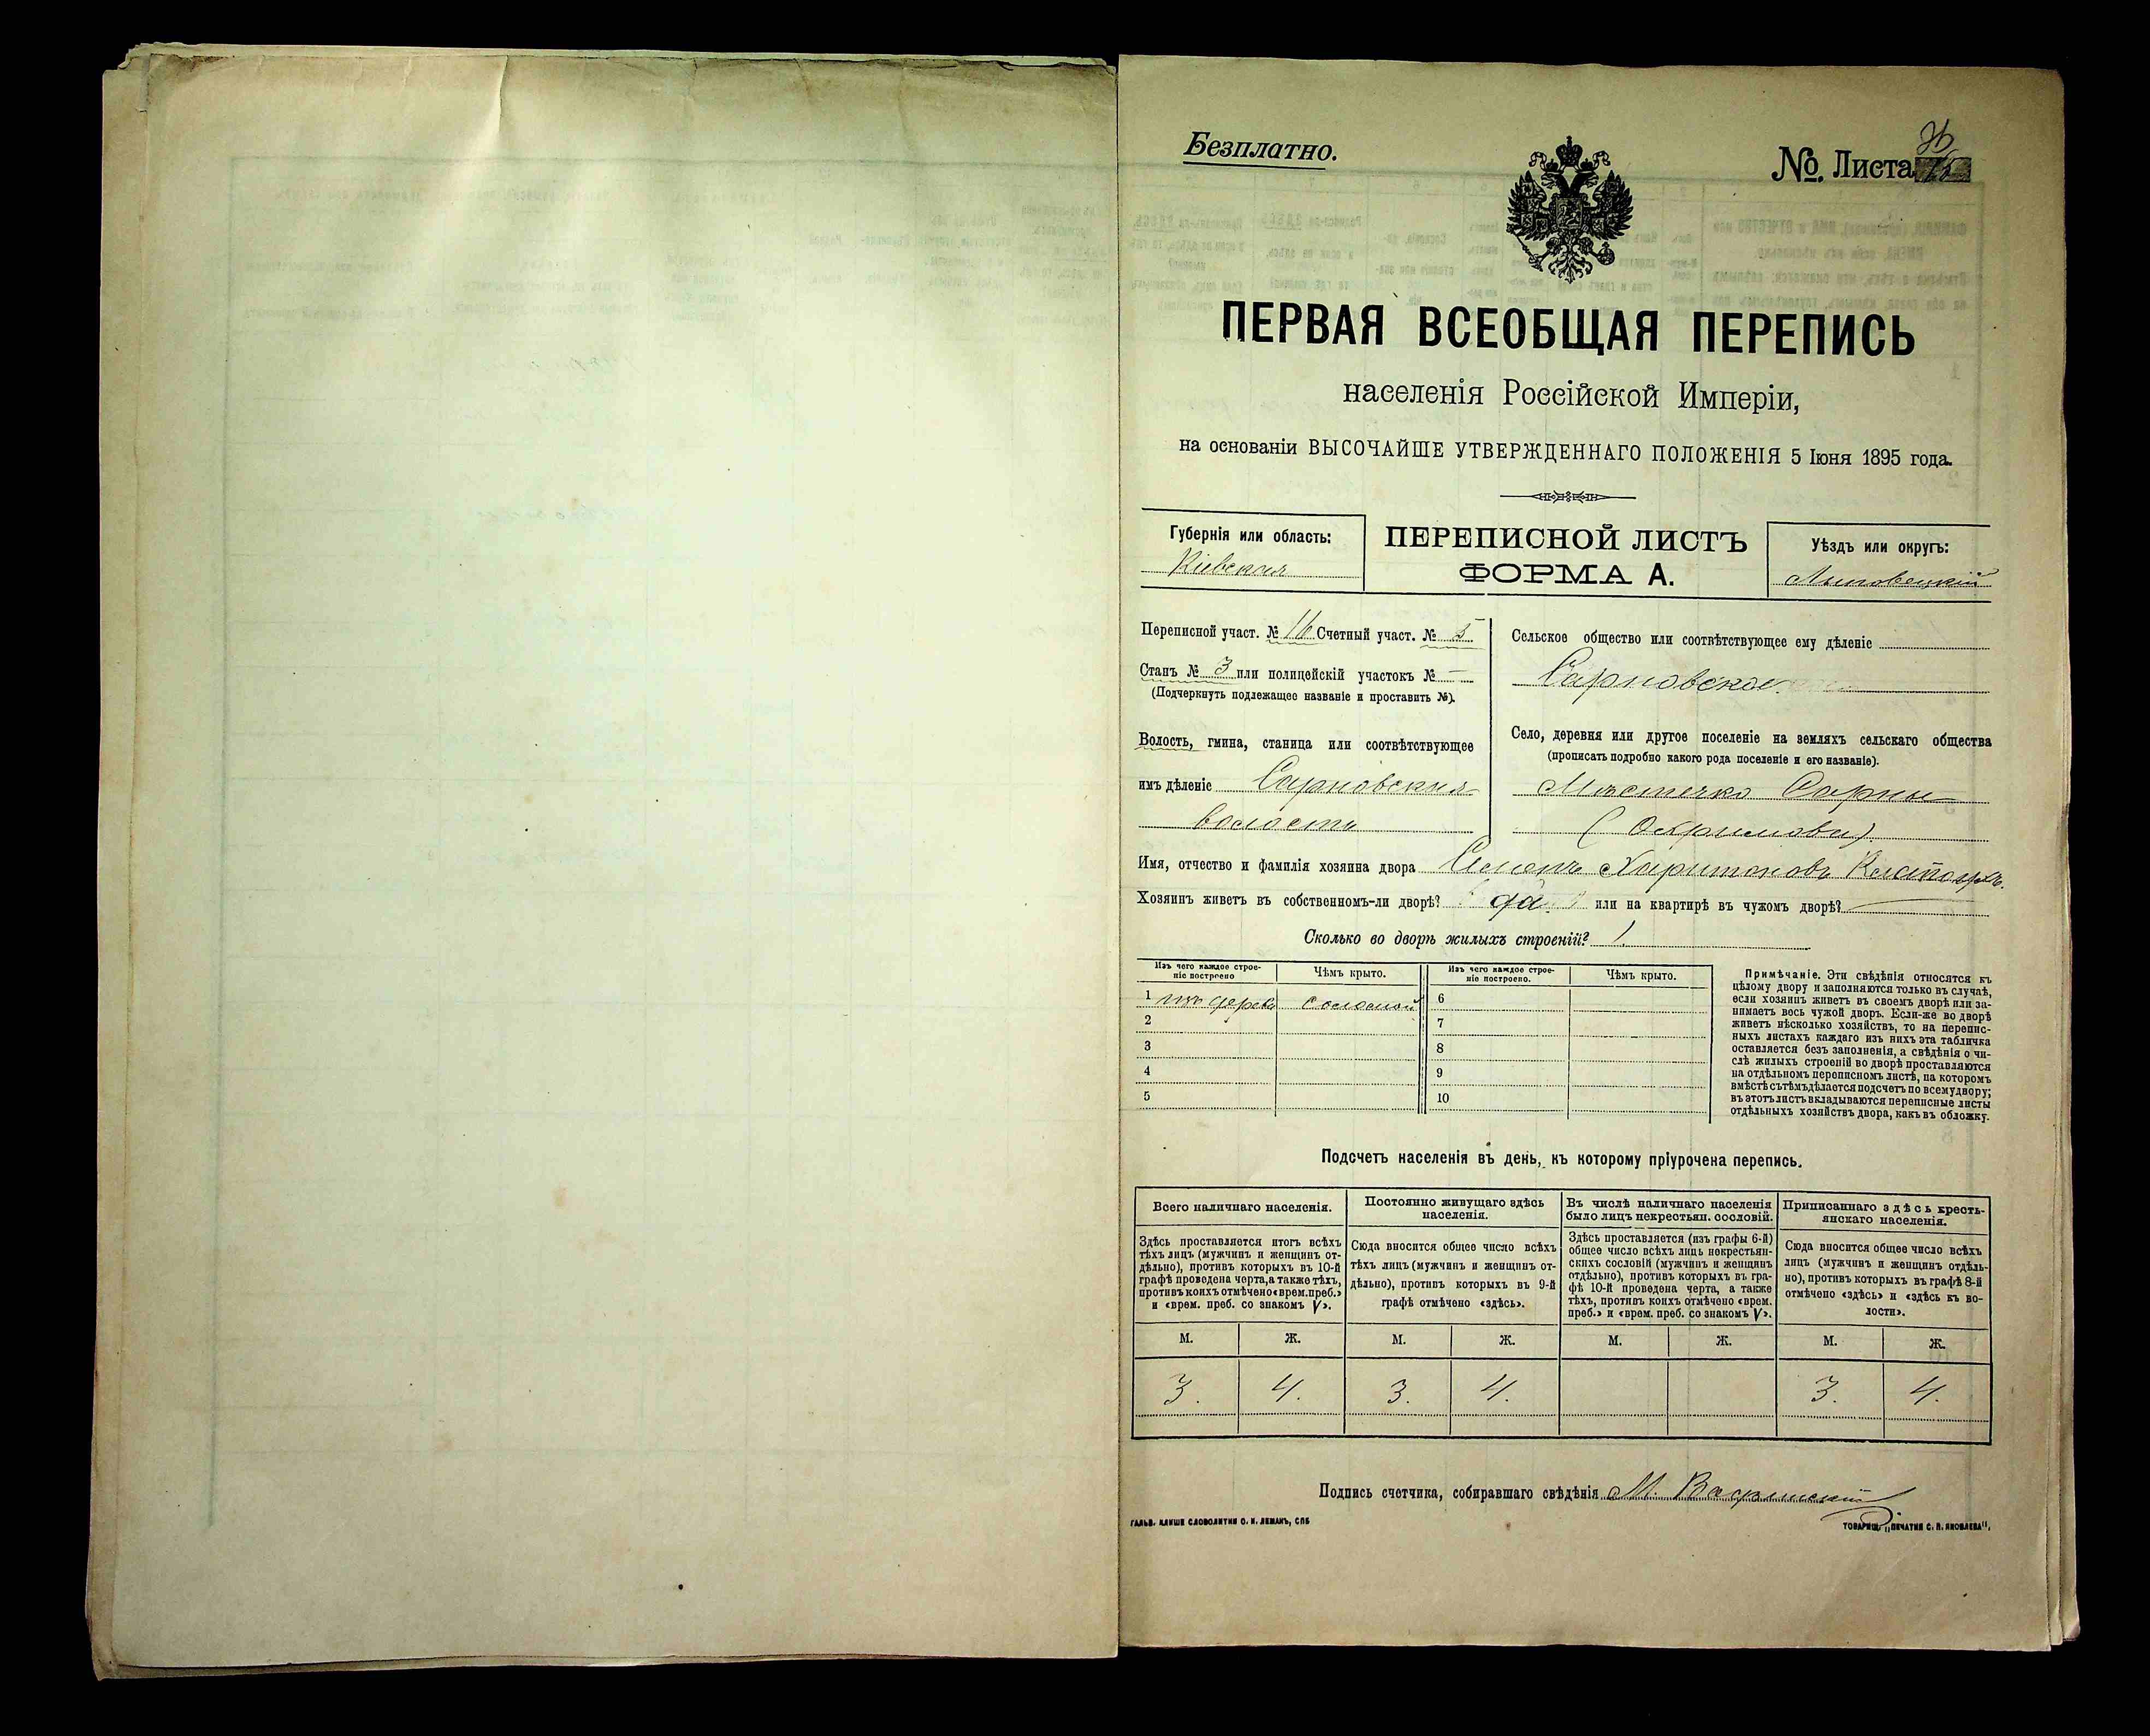 Безплатно.
№. Листа
ПЕРВАЯ ВСЕОБЩАЯ ПЕРЕПИСЬ
населенія Россійской Имперіи,
на основаніи ВЫСОЧАЙШЕ УТВЕРЖДЕННАГО ПОЛОЖЕНІЯ 5 Іюня 1895 года.
Губернія или область:
Кіевская
ПЕРЕПИСНОЙ ЛИСТЪ
ФОРМА А.
Уѣздъ или округъ:
Липовецкій
Переписной участ. № 16 Счетный участ. № 5
Станъ № 3 или полицейскій участокъ № —
(Подчеркнуть подлежащее названіе и проставить №).
Волость, гмина, станица или соотвѣтствующее
имъ дѣленіе Сарновская
волость
Сельское общество или соотвѣтствующее ему дѣленіе
Сарновское
Село, деревня или другое поселеніе на земляхъ сельскаго общества
(прописать подробно какого рода поселеніе и его названіе).
Мѣстечко Сарны
(Охримова)
Имя, отчество и фамилія хозяина двора Семенъ Харитоновъ
Хозяинъ живетъ въ собственномъ-ли дворѣ? да. или на квартирѣ въ чужомъ дворѣ? —
Сколько во дворѣ жилыхъ строеній? 1.
Изъ чего каждое строеніе построено
Чѣмъ крыто.
Изъ чего каждое строеніе построено.
Чѣмъ крыто.
1 изъ дерева соломой 6
2 7
3 8
4 9
5 10
Примѣчаніе. Эти свѣдѣнія относятся къ
цѣлому двору и заполняются только въ случаѣ,
если хозяинъ живетъ въ своемъ дворѣ или за-
нимаетъ весь чужой дворъ. Если-же во дворѣ
живетъ нѣсколько хозяйствъ, то на перепис-
ныхъ листахъ каждаго изъ нихъ эта табличка
оставляется безъ заполненія, а свѣдѣнія о чи-
слѣ жилыхъ строеній во дворѣ проставляются
на отдѣльномъ переписномъ листѣ, на которомъ
вмѣстѣ съ тѣмъ дѣлается подсчетъ по всему двору;
въ этотъ листъ вкладываются переписные листы
отдѣльныхъ хозяйствъ двора, какъ въ обложку.
Подсчетъ населенія въ день, къ которому пріурочена перепись.
Всего наличнаго населенія.
Постоянно живущаго здѣсь
населенія.
Въ числѣ наличнаго населенія
было лицъ некрестьян. сословій.
Приписаннаго здѣсь кресть-
янскаго населенія.
Здѣсь проставляется итогъ всѣхъ
тѣхъ лицъ (мужчинъ и женщинъ от-
дѣльно), противъ которыхъ въ 10-й
графѣ проведена черта, а также тѣхъ,
противъ коихъ отмѣчено «врем. преб.»
и «врем. преб. со знакомъ V».
Сюда вносится общее число всѣхъ
тѣхъ лицъ (мужчинъ и женщинъ от-
дѣльно), противъ которыхъ въ 9-й
графѣ отмѣчено «здѣсь».
Здѣсь проставляется (изъ графы 6-й)
общее число всѣхъ лицъ некрестьян-
скихъ сословій (мужчинъ и женщинъ
отдѣльно), противъ которыхъ въ гра-
фѣ 10-й проведена черта, а также
тѣхъ, противъ коихъ отмѣчено «врем.
преб.» и «врем. преб. со знакомъ V».
Сюда вносится общее число всѣхъ
лицъ (мужчинъ и женщинъ отдѣль-
но), противъ которыхъ въ графѣ 8-й
отмѣчено «здѣсь» и «здѣсь къ во-
лости».
М. Ж. М. Ж. М. Ж. М. Ж.
3. 4. 3. 4. 3. 4.
Подпись счетчика, собиравшаго свѣдѣнія М.
ГАЛЬВ. КЛИШЕ СЛОВОЛИТНИ О. И. ЛЕМАНЪ, СПБ
ТОВАРИЩ. „ПЕЧАТНЯ С. П. ЯКОВЛЕВА“.